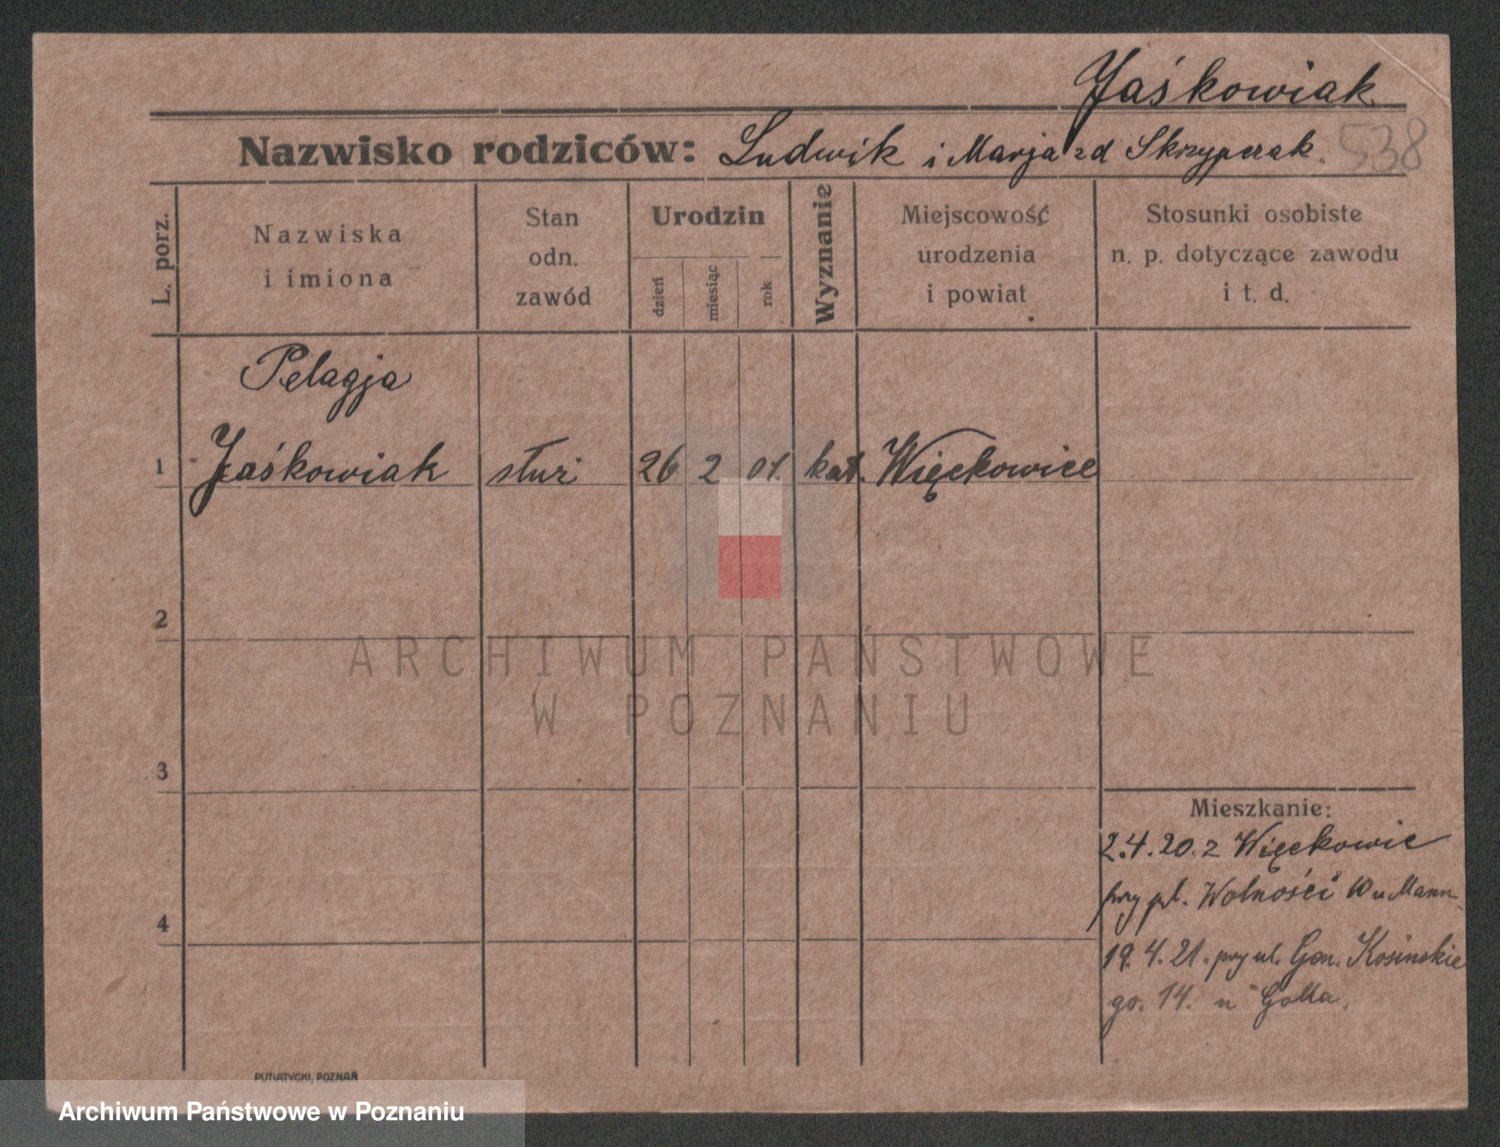 Jaśkowiak
Nazwisko rodziców: Ludwik i Marja zd Skrzypczak.
538
L. porz.
Nazwiska
i imiona
Stan
odn.
zawód
Urodzin
dzień
miesiąc
rok
Wyznanie
Miejscowość
urodzenia
i powiat
Stosunki osobiste
n. p. dotyczące zawodu
i t. d.
Pelagja
1 Jaśkowiak służ 26 2 01. kat. Więckowice
2
3
4
ARCHIWUM PAŃSTWOWE
W POZNANIU
Mieszkanie:
2.4.20. z Więckowic
przy pl. Wolności 10 u Mann
19.4.21. przy ul. Gen. Kosinskie
go. 14. u Golla.
PUTIATYCKI, POZNAŃ
Archiwum Państwowe w Poznaniu